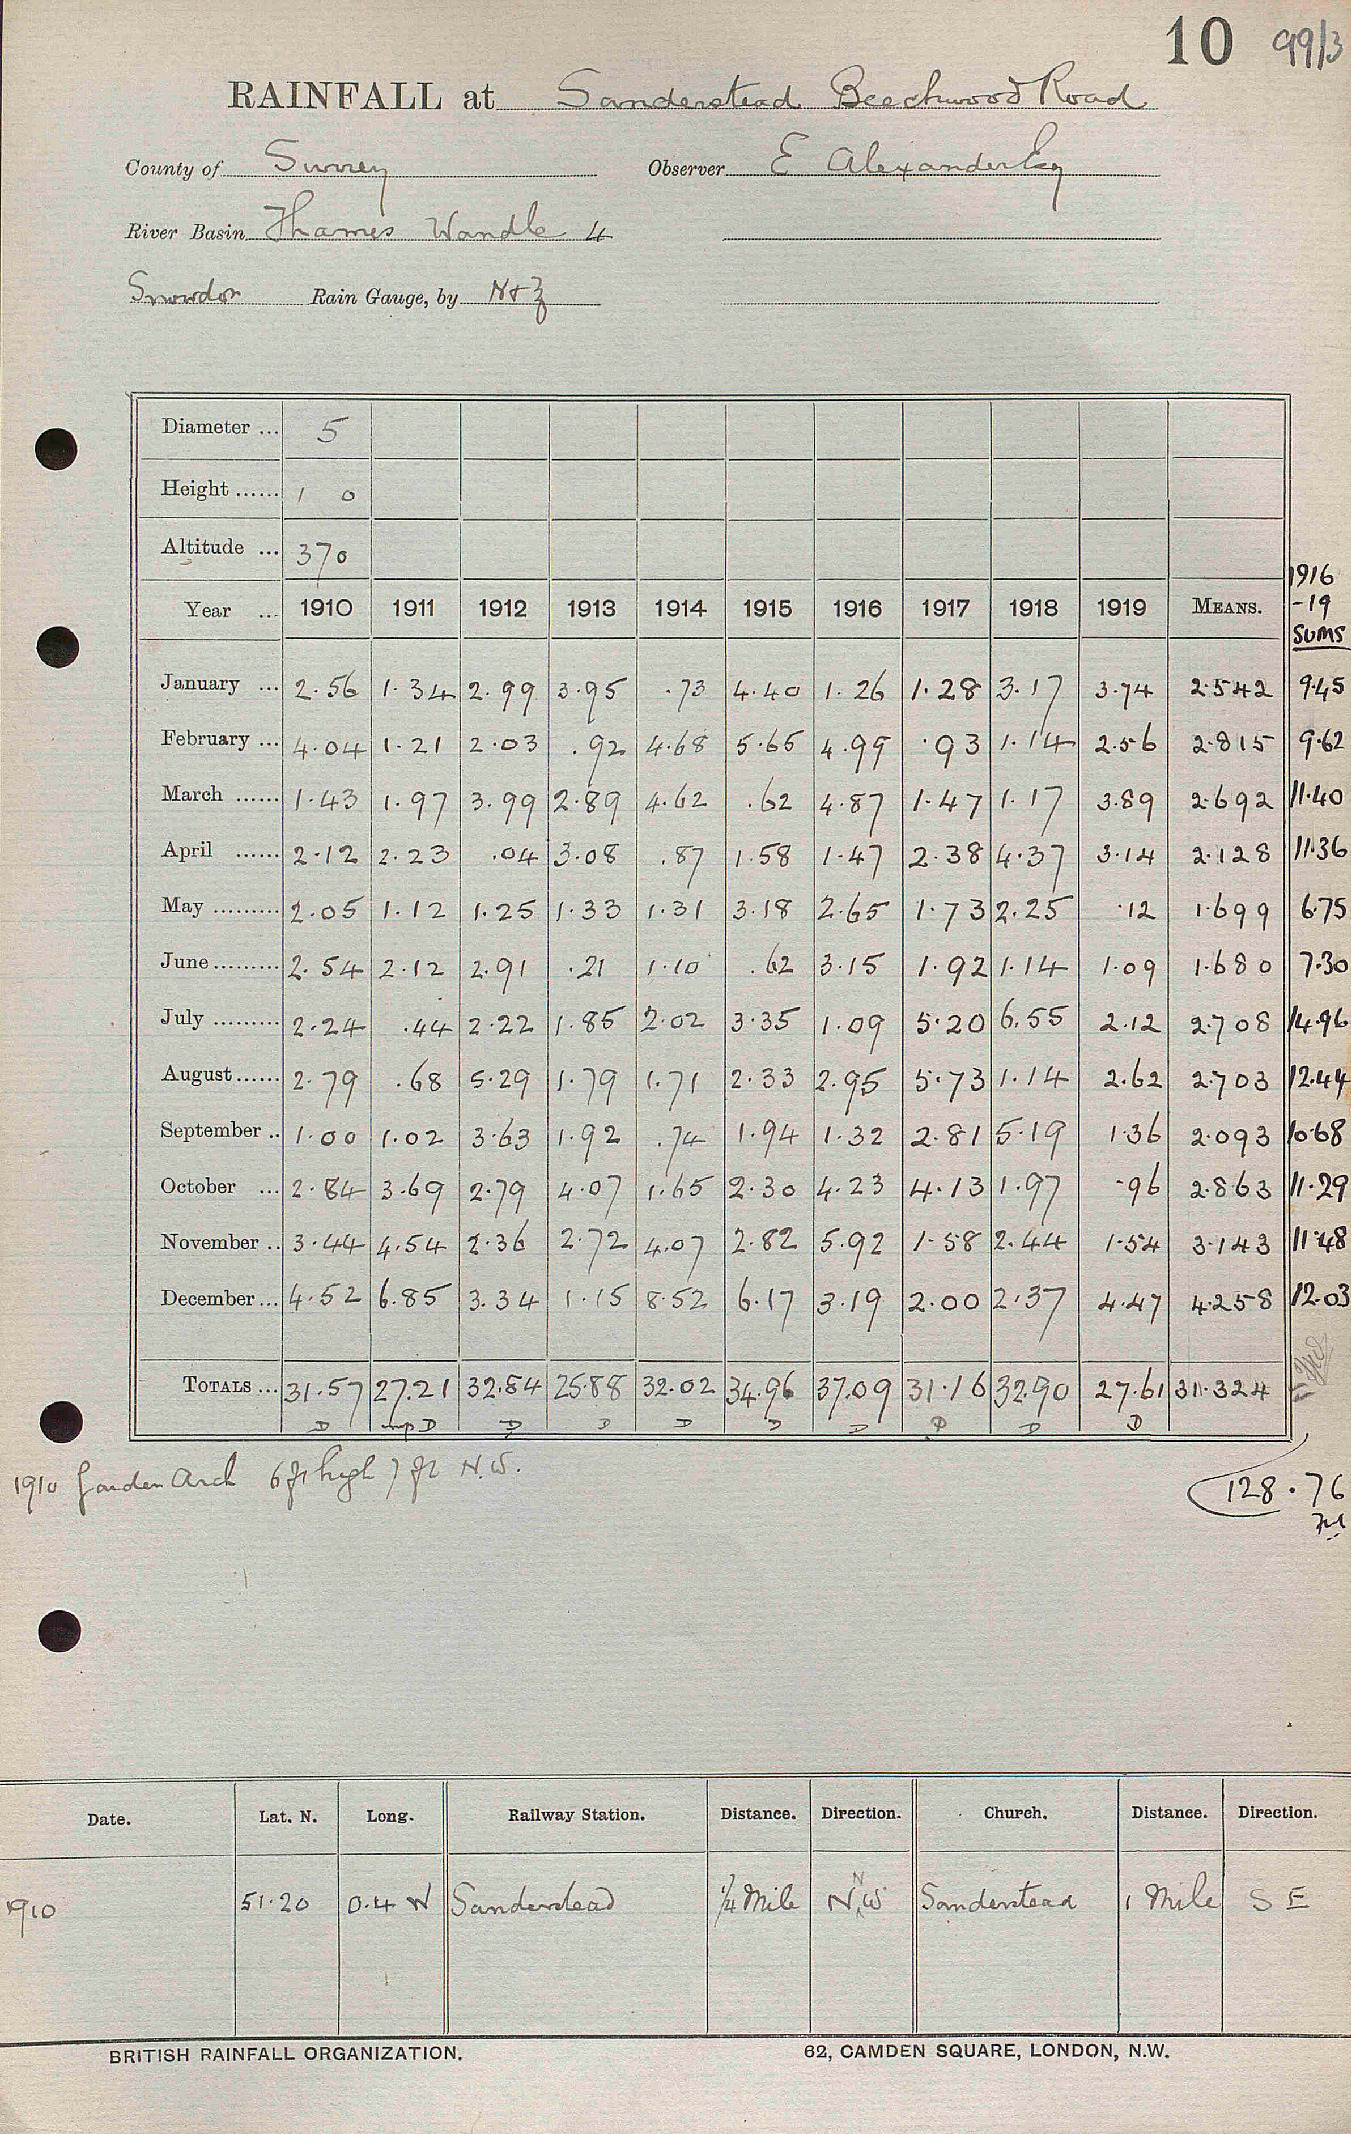 10 99/3
RAINFALL at Sanderstead Beechwood Road
County of Surrey Observer E Alexander Esq
River Basin Thames Wandle 4
Snowdon Rain Gauge, by N & Z
Diameter ... 5
Height ...... 1 0
Altitude ... 370
1916
Year ... 1910 1911 1912 1913 1914 1915 1916 1917 1918 1919 MEANS. -19
Sums
January ... 2.56 1.34 2.99 3.95 .73 4.40 1.26 1.28 3.17 3.74 2.542 9.45
February ... 4.04 1.21 2.03 .92 4.68 5.65 4.99 .93 1.14 2.56 2.815 9.62
March ...... 1.43 1.97 3.99 2.89 4.62 .62 4.87 1.47 1.17 3.89 2.692 11.40
April ...... 2.12 2.23 .04 3.08 .87 1.58 1.47 2.38 4.37 3.14 2.128 11.36
May ......... 2.05 1.12 1.25 1.33 1.31 3.18 2.65 1.73 2.25 .12 1.699 6.75
June ......... 2.54 2.12 2.91 .21 1.10 .62 3.15 1.92 1.14 1.09 1.680 7.30
July ......... 2.24 .44 2.22 1.85 2.02 3.35 1.09 5.20 6.55 2.12 2.708 14.96
August ...... 2.79 .68 5.29 1.79 1.71 2.33 2.95 5.73 1.14 2.62 2.703 12.44
September .. 1.00 1.02 3.63 1.92 .74 1.94 1.32 2.81 5.19 1.36 2.093 10.68
October ... 2.84 3.69 2.79 4.07 1.65 2.30 4.23 4.13 1.97 .96 2.863 11.29
November .. 3.44 4.54 2.36 2.72 4.07 2.82 5.92 1.58 2.44 1.54 3.143 11.48
December ... 4.52 6.85 3.34 1.15 8.52 6.17 3.19 2.00 2.37 4.47 4.258 12.03
TOTALS ... 31.57 27.21 32.84 25.88 32.02 34.96 37.09 31.16 32.90 27.61 31.324
D D D D D D D D D D
1910 Garden Arch 6 ft high 7 ft N.W.
128.76
Date. Lat. N. Long. Railway Station. Distance. Direction. Church. Distance. Direction.
1910 51.20 0.4 W Sanderstead 1/4 Mile N N W Sanderstead 1 Mile S E
BRITISH RAINFALL ORGANIZATION. 62, CAMDEN SQUARE, LONDON, N.W.